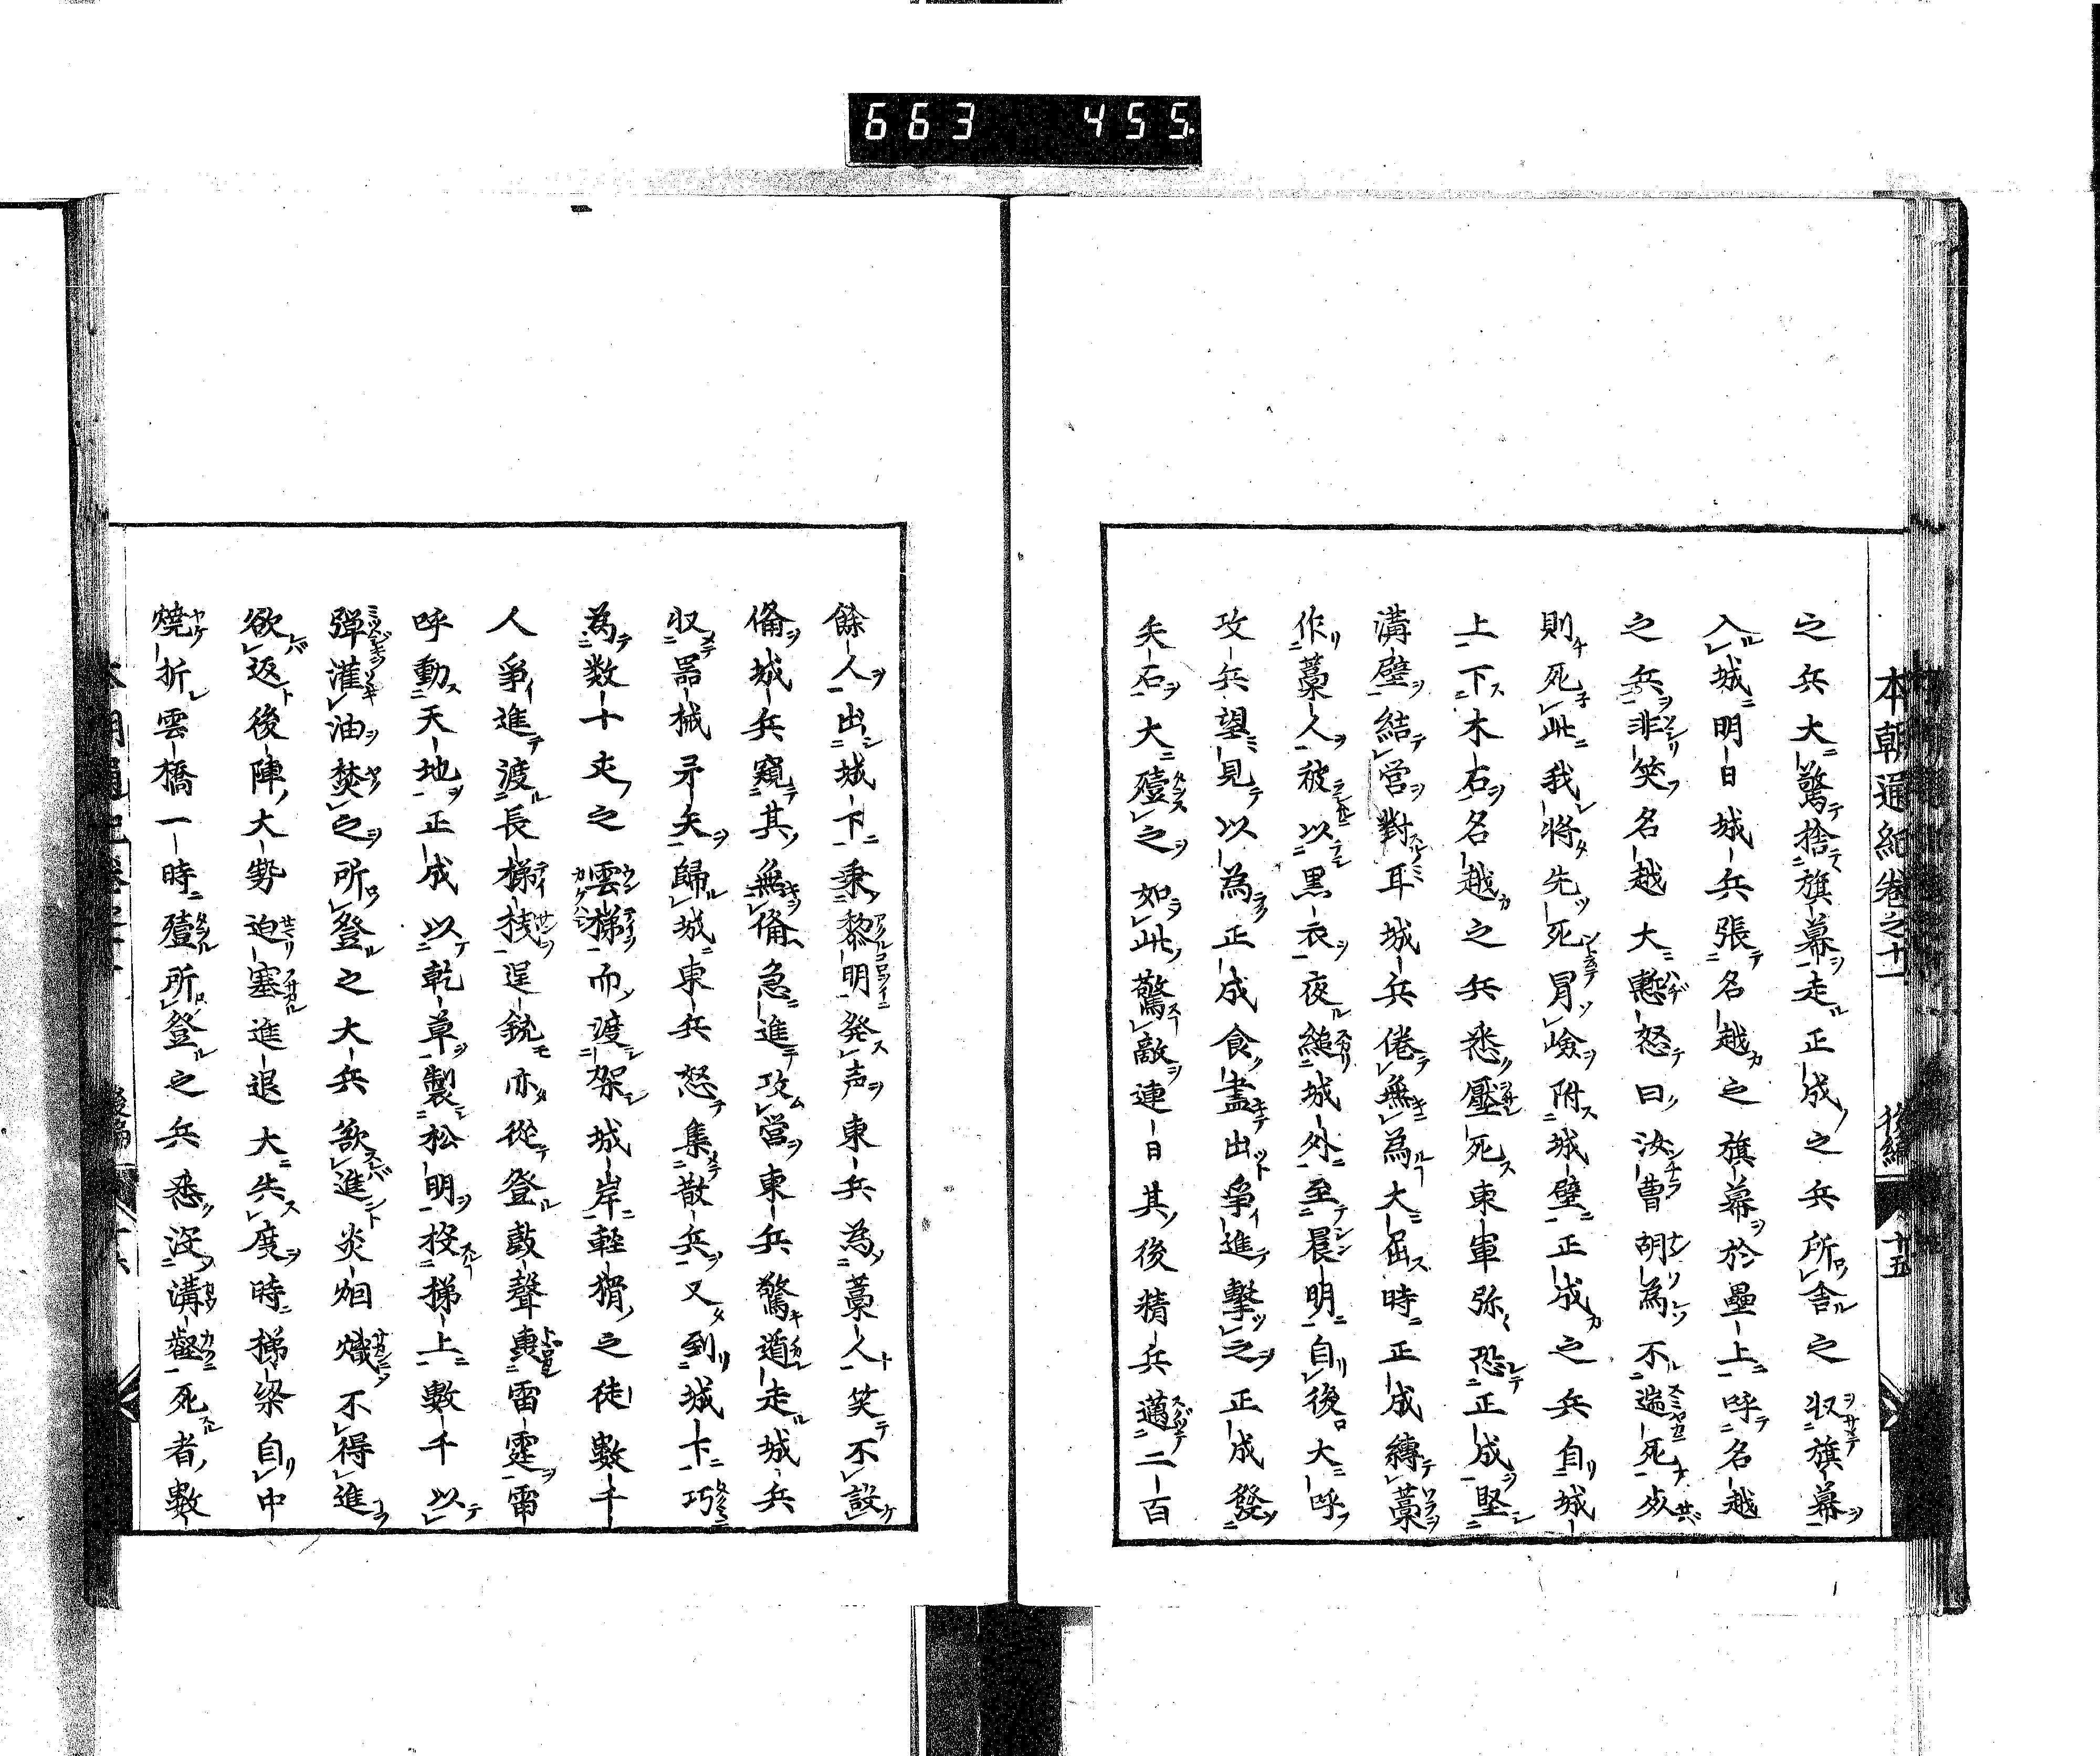 663 455
本朝通紀卷之十一 後編 十五
之兵大驚捨旗幕走正成之兵所舎之収旗幕
入城明日城兵張名越之旗幕於壘上呼名越
之兵非笑名越大慙怒曰汝曹胡為不遄死
則死此我將先死冐嶮附城壁正成之兵自城
上下木石名越之兵悉壓死東軍弥恐正成堅
溝壁結営對耳城兵倦無為大屈時正成縛藁
作藁人被以黒衣夜縋城外至晨明自後大呼
攻兵望見以為正成食盡出爭進擊之正成發
矢石大殪之如此驚敵連日其後精兵邁二百
餘人出城下乗黎明発声東兵為藁人笑不設
俻城兵窺其無俻急進攻営東兵驚遁走城兵
収噐械弓矢歸城東兵怒集散兵又到城下巧
為数十丈之雲梯而渡架城岸軽猾之徒數千
人爭進渡長梯棧逞銃亦從登鼓聲轟雷霆雷
呼動天地正成以乾草製松明投梯上數千以
弾灌油焚之所登之大兵欲進炎焰熾不得進
欲返後陣大勢迫塞進退大失度時梯梁自中
燒折雲橋一時殪所登之兵悉沒溝壑死者數